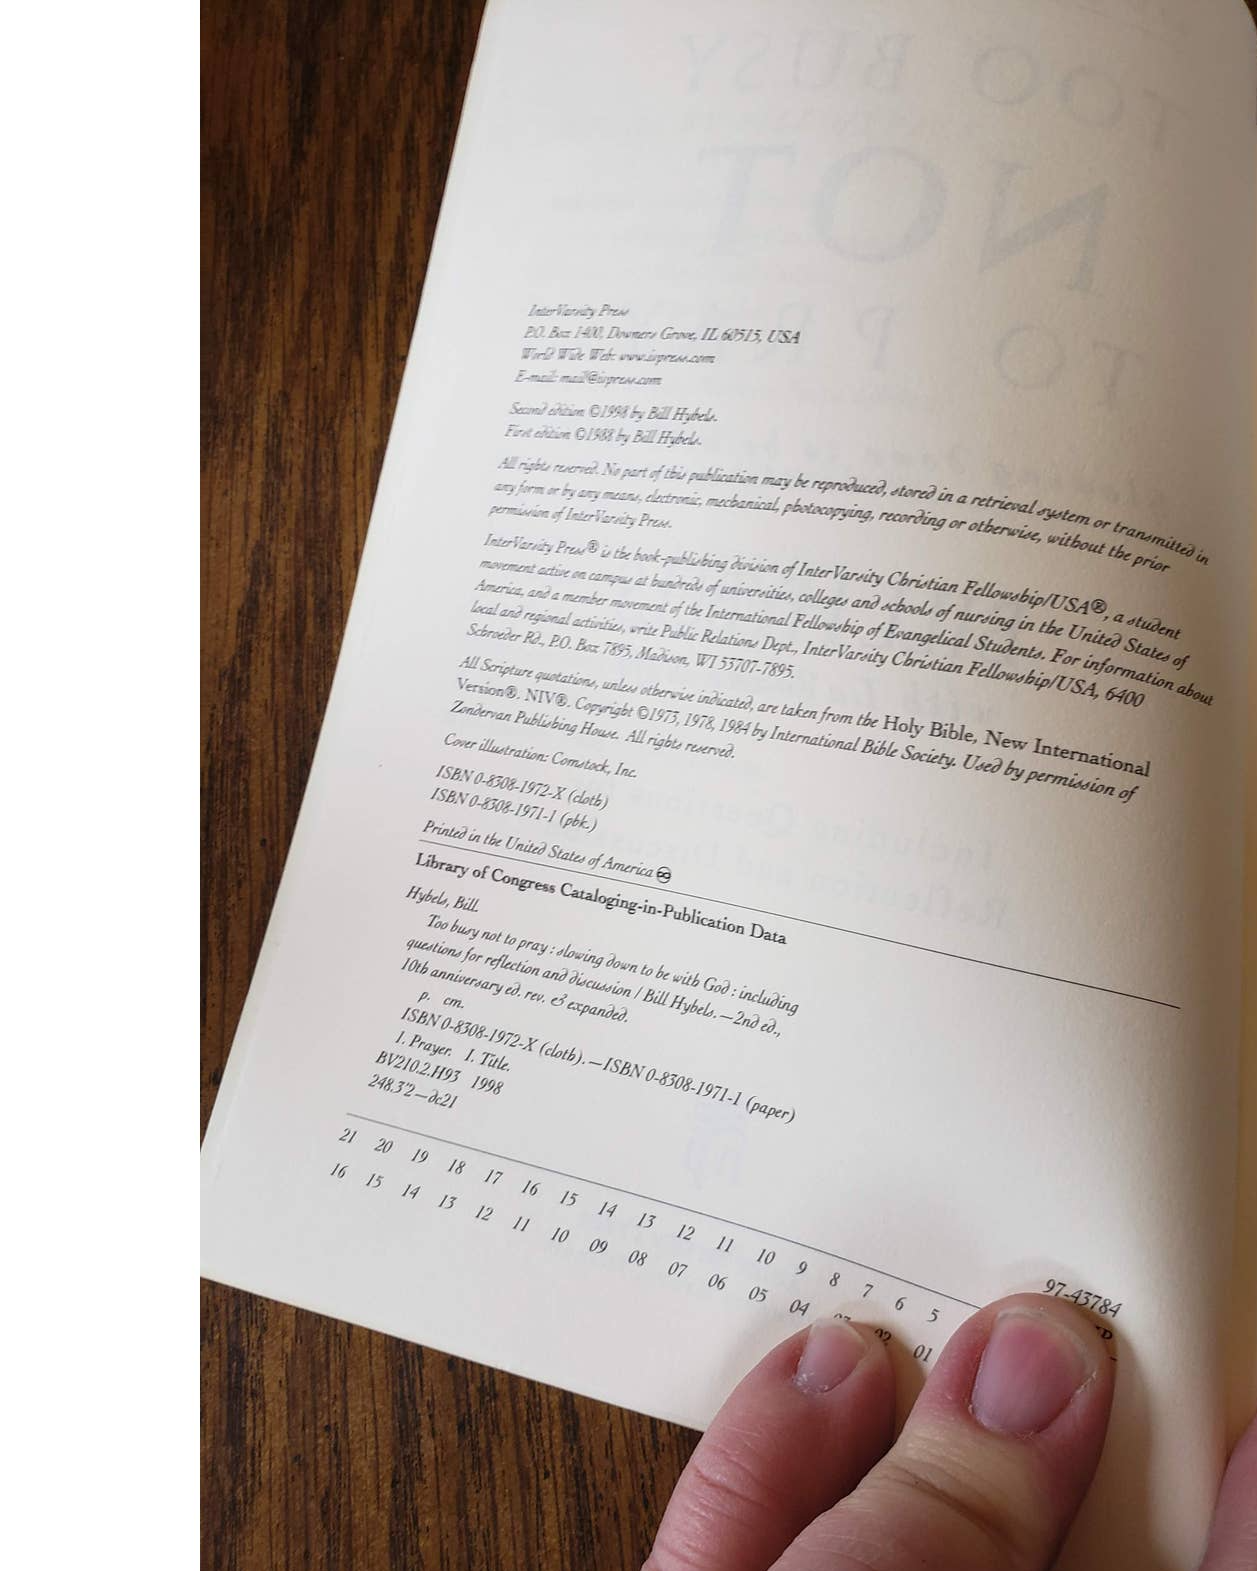 InterVarsity Press
P.O. Box 1400, Downers Grove, IL 60515, USA
World Wide Web: www.ivpress.com
E-mail: mail@ivpress.com
Second edition ©1998 by Bill Hybels.
First edition ©1988 by Bill Hybels.
All rights reserved. No part of this publication may be reproduced, stored in a retrieval system or transmitted in
any form or by any means, electronic, mechanical, photocopying, recording or otherwise, without the prior
permission of InterVarsity Press.
InterVarsity Press® is the book-publishing division of InterVarsity Christian Fellowship/USA®, a student
movement active on campus at hundreds of universities, colleges and schools of nursing in the United States of
America, and a member movement of the International Fellowship of Evangelical Students. For information about
local and regional activities, write Public Relations Dept., InterVarsity Christian Fellowship/USA, 6400
Schroeder Rd., P.O. Box 7895, Madison, WI 53707-7895.
All Scripture quotations, unless otherwise indicated, are taken from the Holy Bible, New International
Version®. NIV®. Copyright ©1973, 1978, 1984 by International Bible Society. Used by permission of
Zondervan Publishing House. All rights reserved.
Cover illustration: Comstock, Inc.
ISBN 0-8308-1972-X (cloth)
ISBN 0-8308-1971-1 (pbk.)
Printed in the United States of America
Library of Congress Cataloging-in-Publication Data
Hybels, Bill.
Too busy not to pray : slowing down to be with God : including
questions for reflection and discussion / Bill Hybels.—2nd ed.,
10th anniversary ed. rev. & expanded.
p. cm.
ISBN 0-8308-1972-X (cloth).—ISBN 0-8308-1971-1 (paper)
1. Prayer. I. Title.
BV210.2.H93 1998
248.3'2—dc21
97-43784
21 20 19 18 17 16 15 14 13 12 11 10 9 8 7 6 5
16 15 14 13 12 11 10 09 08 07 06 05 04 02 01